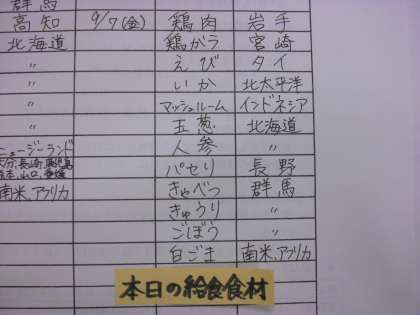 群馬
高知 9/7(金) 鶏肉 岩手
北海道 鶏がら 宮崎
〃 えび タイ
〃 いか 北太平洋
〃 マッシュルーム インドネシア
〃 玉葱 北海道
ニュージーランド 人参 〃
大分,長崎,鹿児島
熊本,山口,愛媛 パセリ 長野
南米,アフリカ きゃべつ 群馬
きゅうり 〃
ごぼう 〃
白ごま 南米,アフリカ
本日の給食食材